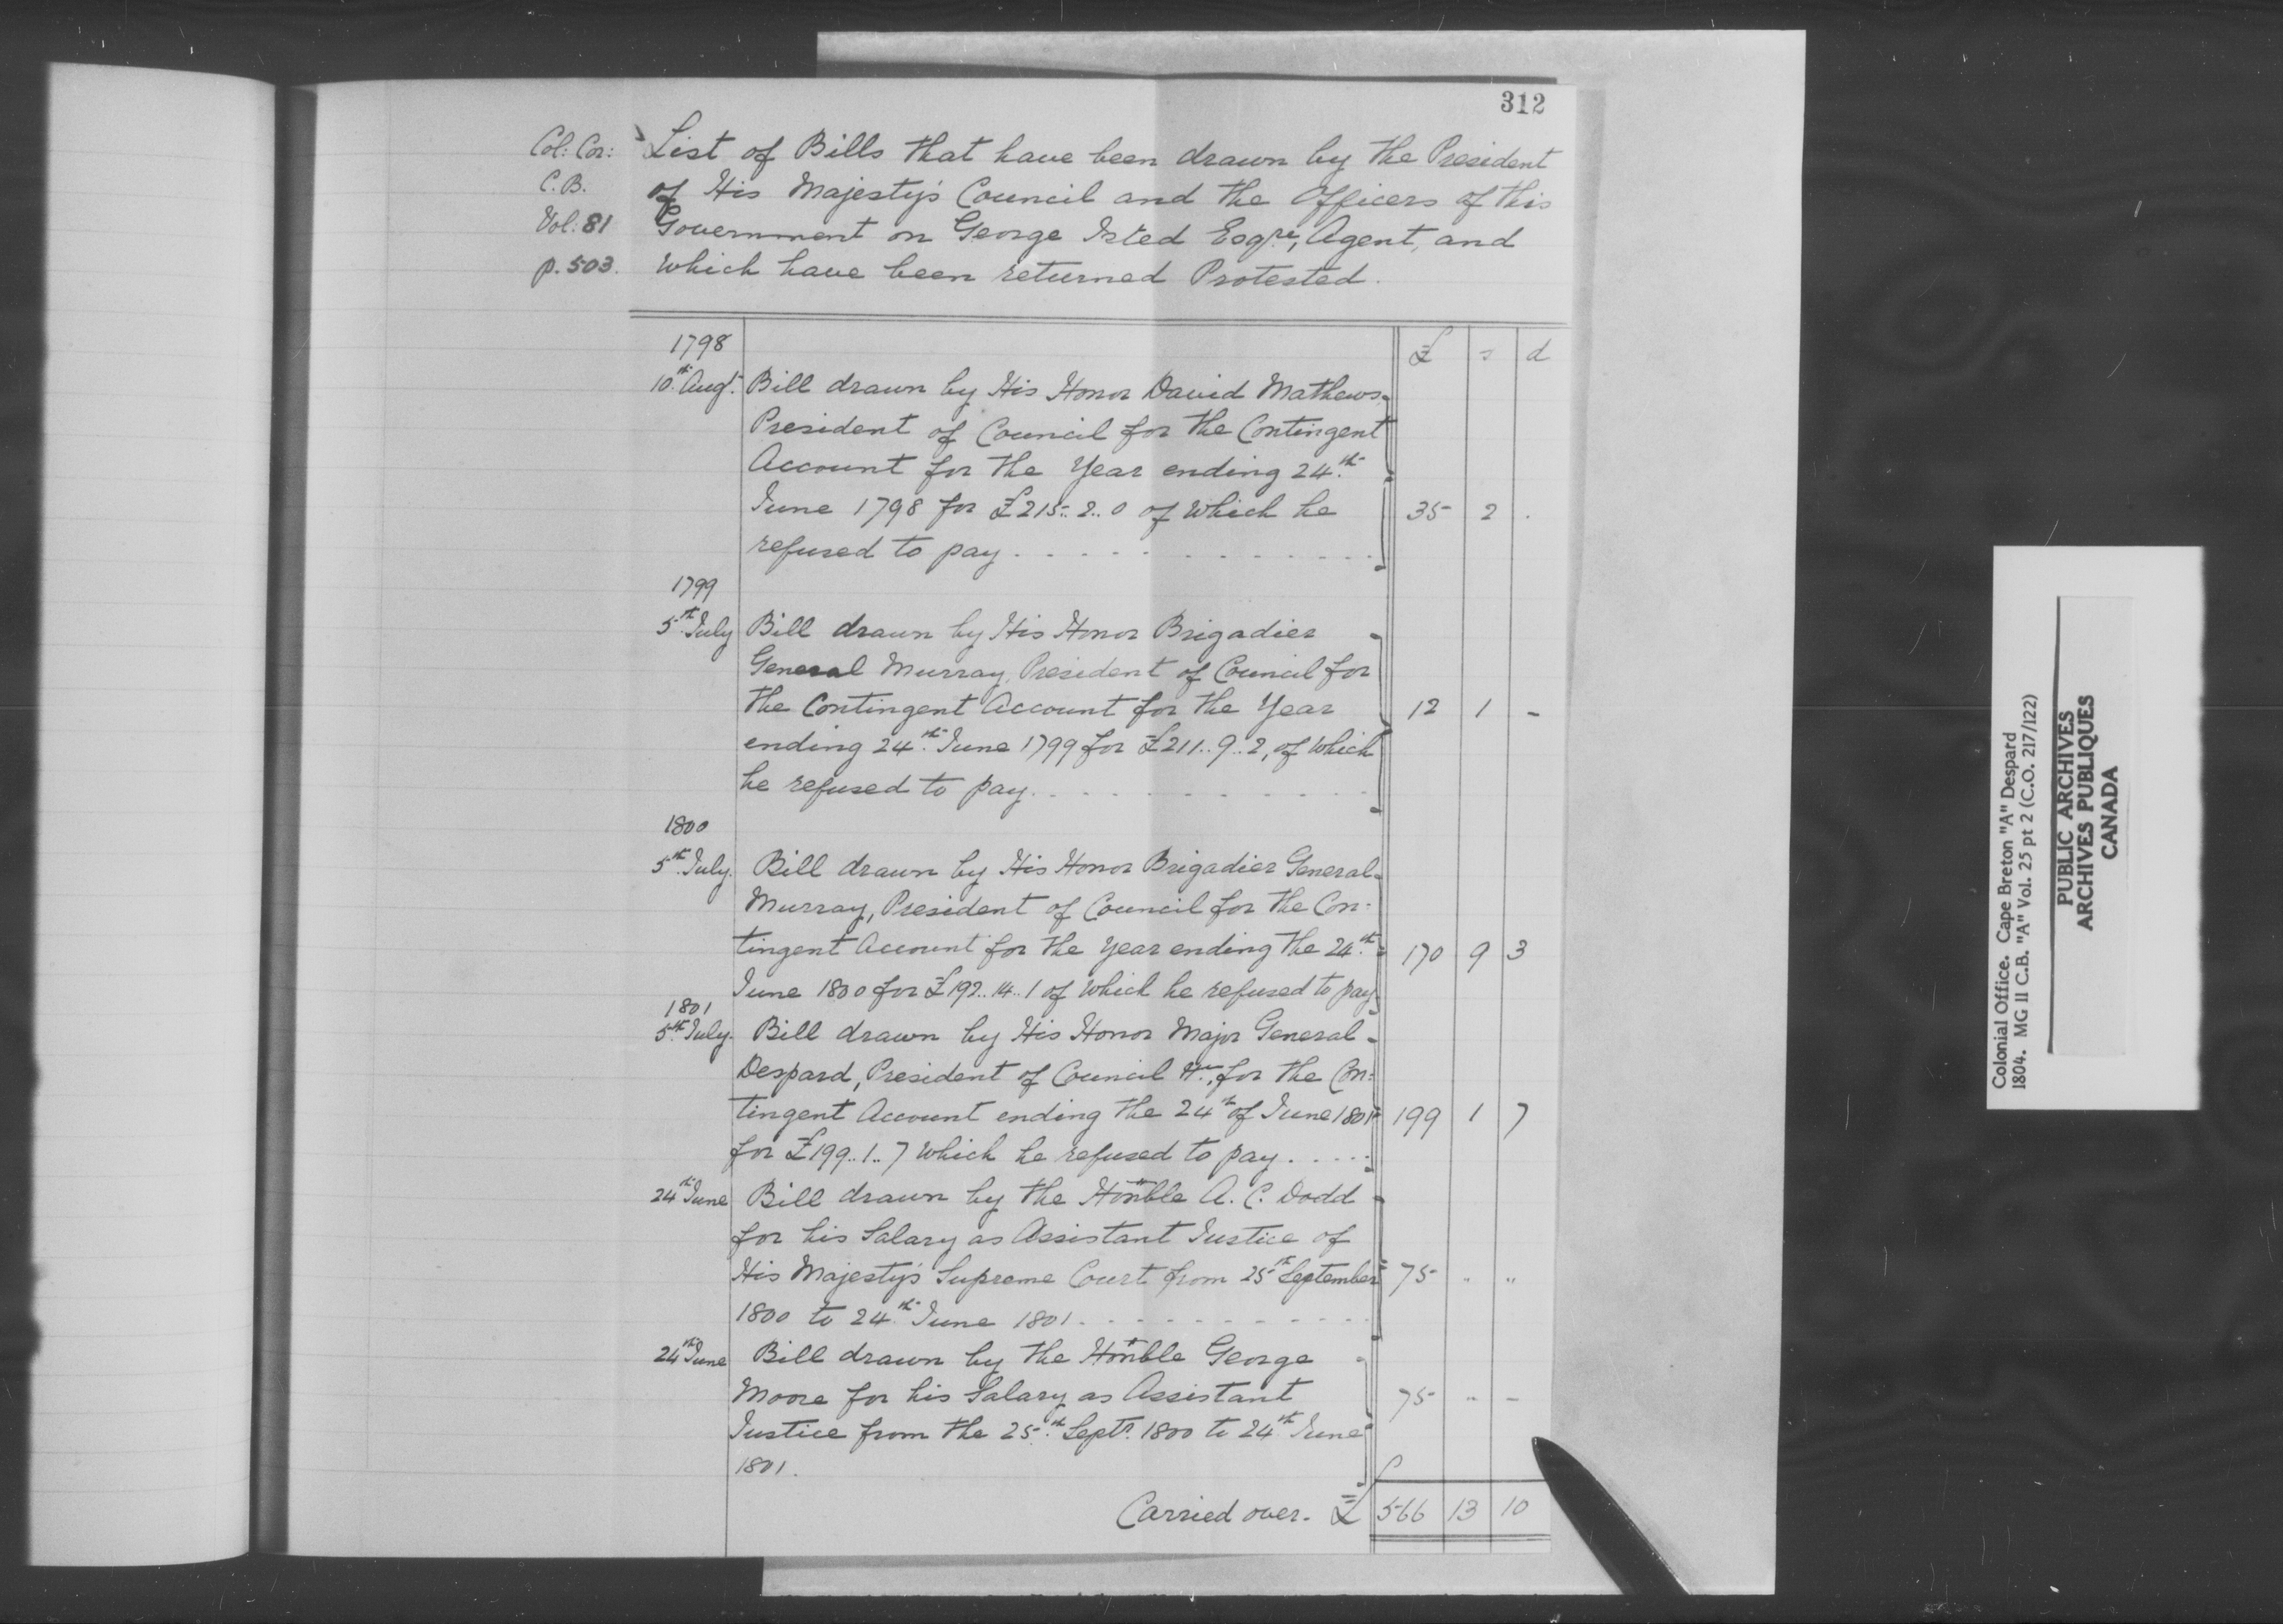 312
Col: Cor:
C.B.
Vol: 81
p. 503.
List of Bills that have been drawn by the President
of His Majesty's Council and the Officers of this
Government on George Isted Esqre, Agent, and
which have been returned Protested.
£ s d
1798
10th Augt. Bill drawn by His Honor David Mathews
President of Council for the Contingent
Account for the Year ending 24th
June 1798 for £215..2..0 of which he 35 2 .
refused to pay
1799
5th July Bill drawn by His Honor Brigadier
General Murray, President of Council for
the Contingent Account for the Year 12 1 -
ending 24th June 1799 for £211..9..2, of which
he refused to pay
1800
5th July. Bill drawn by His Honor Brigadier General
Murray, President of Council for the Con-
tingent Account for the year ending the 24th 170 9 3
June 1800 for £192..14..1 of which he refused to pay
1801
5th July. Bill drawn by His Honor Major General
Despard, President of Council &c., for the Con:
tingent Account ending the 24th of June 1801 199 1 7
for £199..1..7 which he refused to pay
24th June Bill drawn by the Honble A. C. Dodd
for his Salary as Assistant Justice of
His Majesty's Supreme Court from 25th September 75 " "
1800 to 24th June 1801
24th June Bill drawn by the Honble George
Moore for his Salary as Assistant 75 " -
Justice from the 25th Septr. 1800 to 24th June
1801.
Carried over. £ 566 13 10
Colonial Office. Cape Breton "A" Despard
1804. MG 11 C.B. "A" Vol. 25 pt 2 (C.O. 217/122)
PUBLIC ARCHIVES
ARCHIVES PUBLIQUES
CANADA